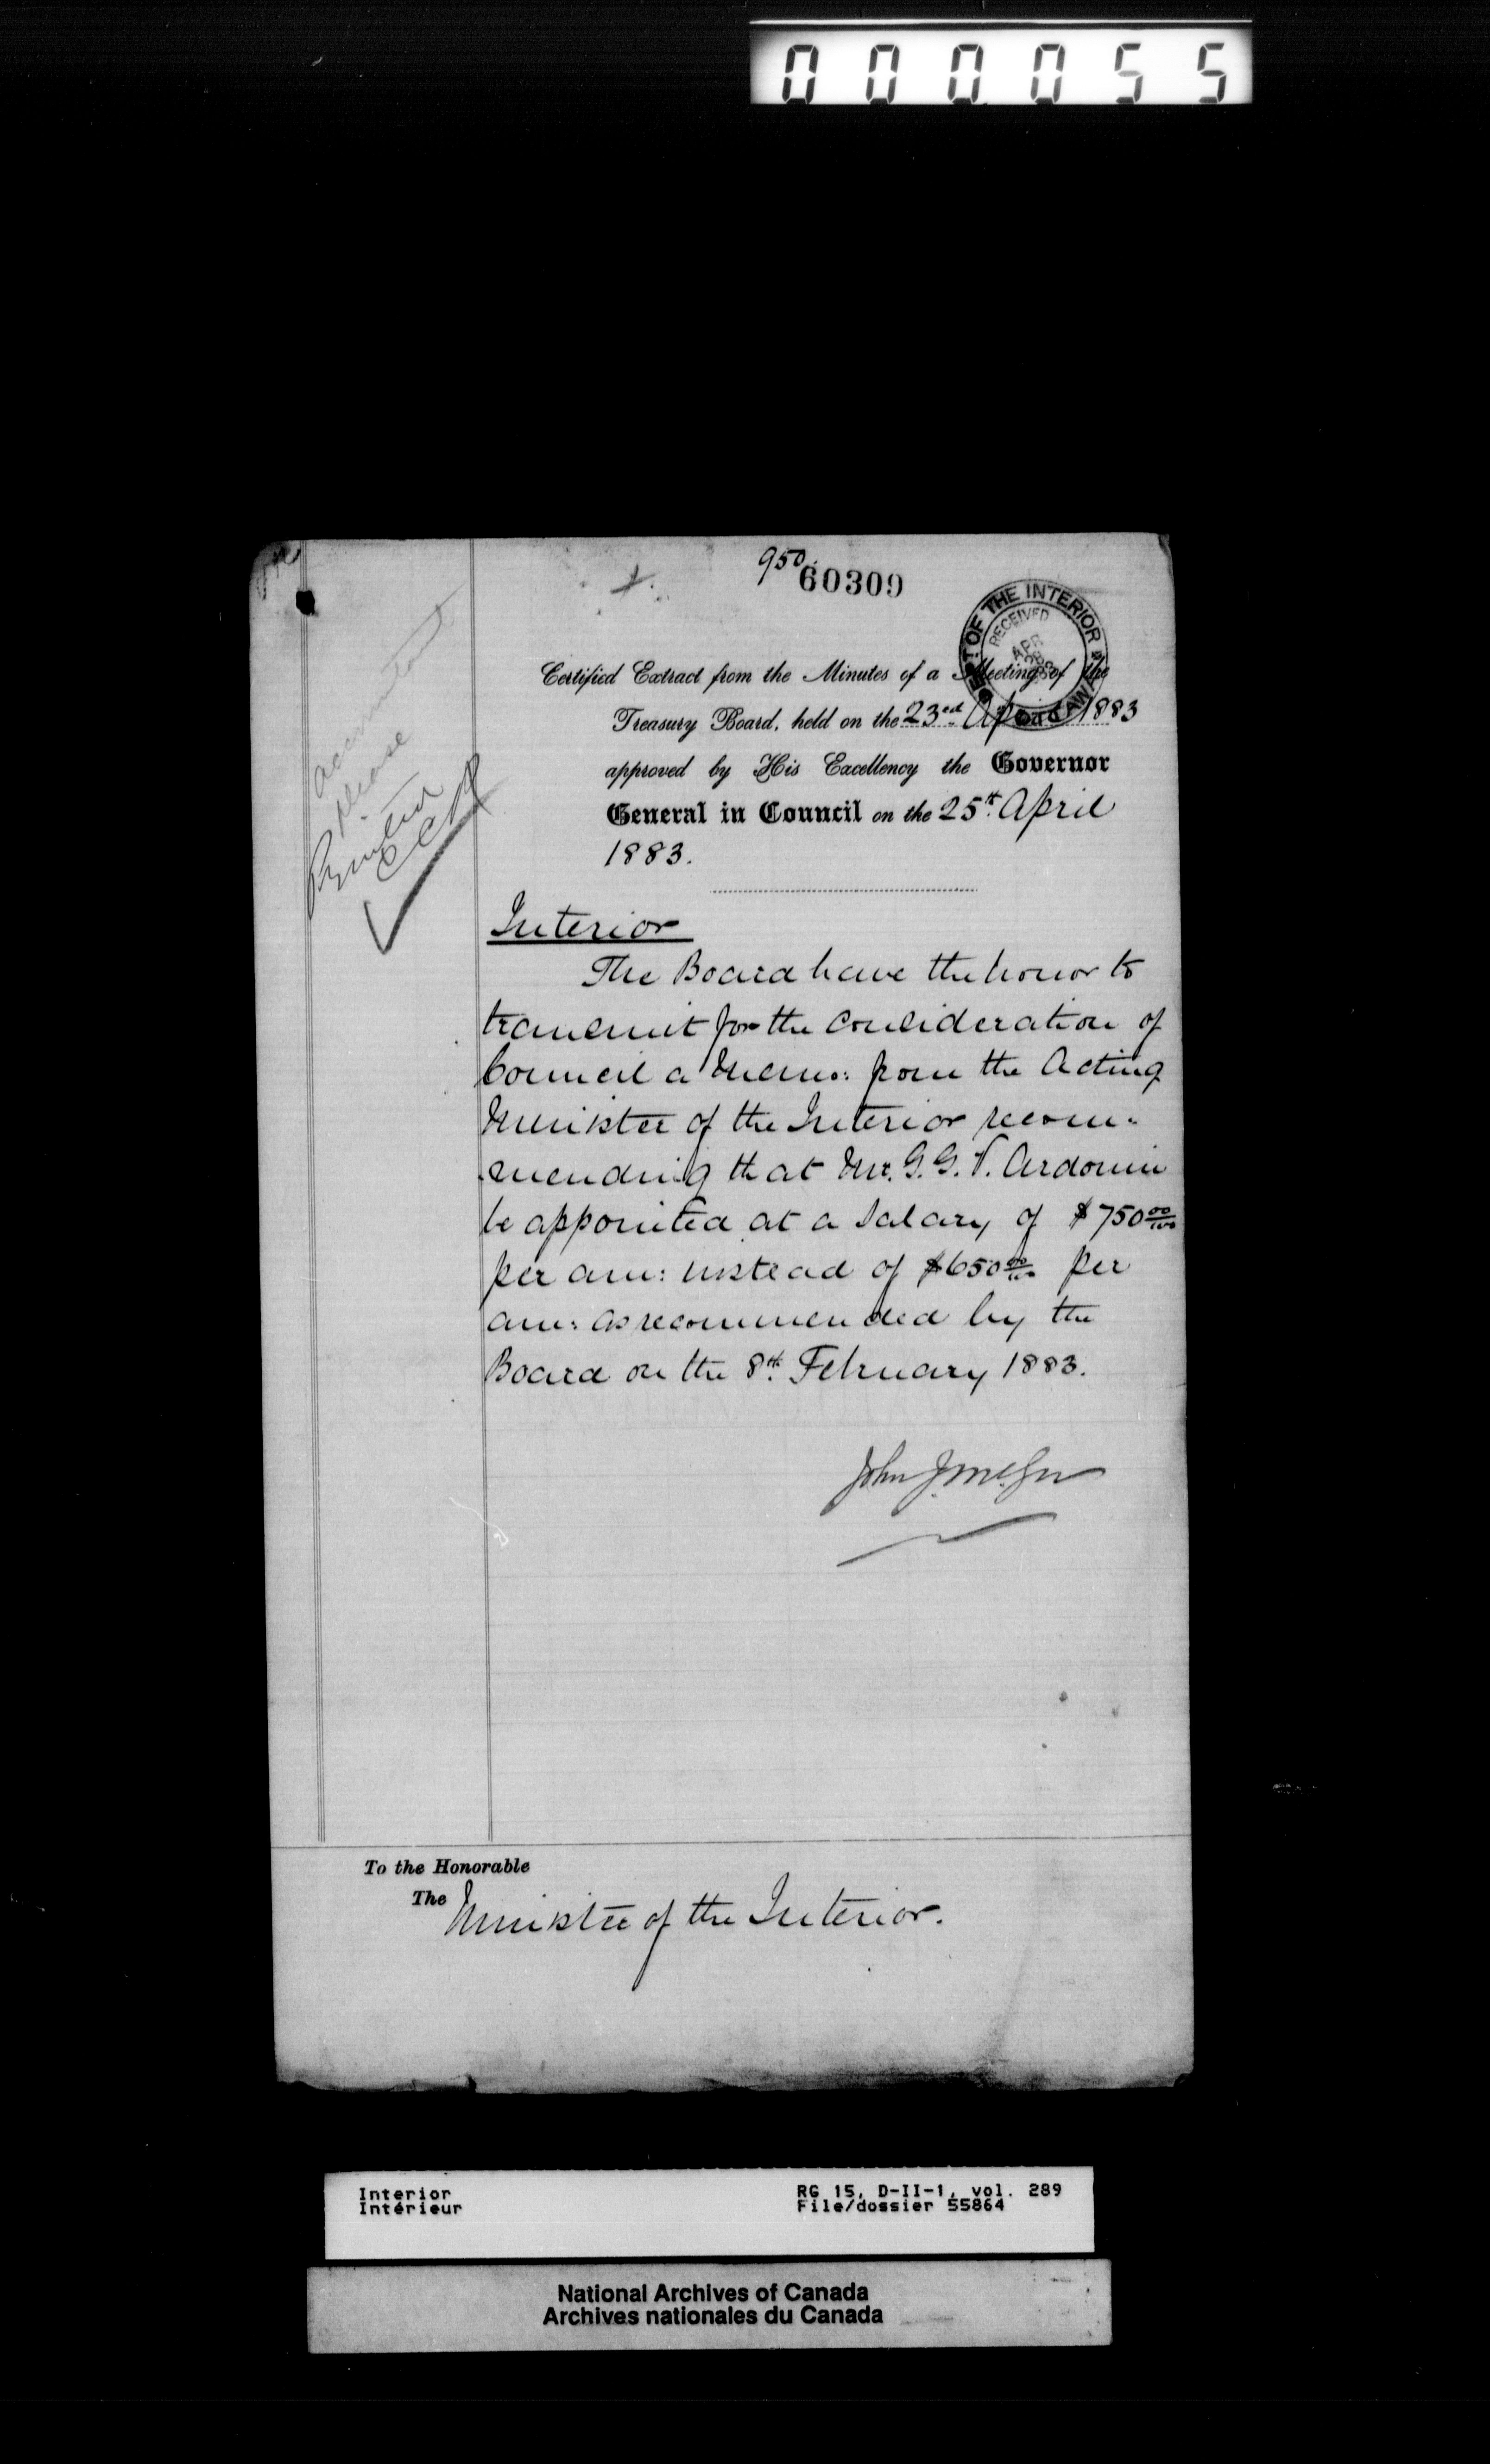 000055
950.
60309
DEPT OF THE INTERIOR
RECEIVED
APR
28
1883
OTTAWA
Certified Extract from the Minutes of a Meeting of the
Treasury Board, held on the 23rd April 1883
approved by His Excellency the Governor
General in Council on the 25th April
1883.
accountant
please
Interior
The Board have the honor to
transmit for the consideration of
Council a Memo: from the Acting
Minister of the Interior recom-
mending that Mr. G. G. V. Ardouin
be appointed at a Salary of $750 00/100
per ann: instead of $650 00/100 per
ann: as recommended by the
Board on the 8th February 1883.
John J. McGee
To the Honorable
The Minister of the Interior.
Interior
Intérieur
RG 15, D-II-1, vol. 289
File/dossier 55864
National Archives of Canada
Archives nationales du Canada